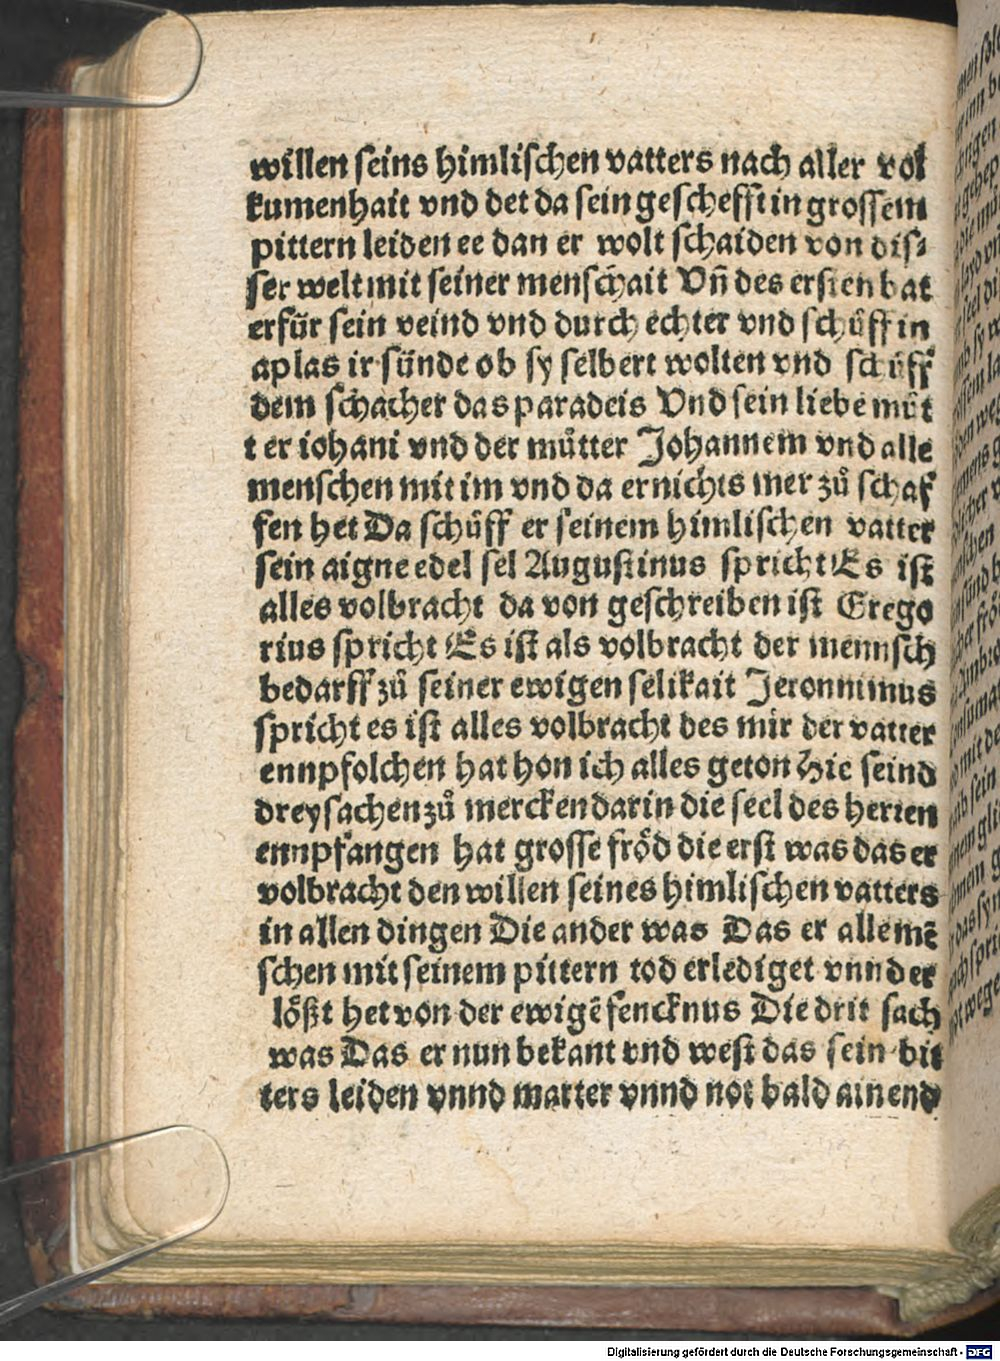 willen seins himlischen vatters nach aller vol
kumenhait vnd det da sein geschefft in grossem
pittern leiden ee dan er wolt schaiden von dis⸗
ser welt mit seiner menschait Vñ des ersten bat
er fůr sein veind vnd durch echter vnd schůff in
aplas ir sünde ob sy selbert wolten vnd schůff
dem schacher das paradeis Vnd sein liebe můt
t er iohani vnd der můtter Johannem vnd alle
menschen mit im vnd da er nichts mer zů schaf
fen het Da schůff er seinem himlischen vatter
sein aigne edel sel Augustinus spricht Es ist
alles volbracht da von geschreiben ist Grego
rius spricht Es ist als volbracht der mennsch
bedarff zů seiner ewigen selikait Jeronnimus
spricht es ist alles volbracht des mir der vatter
ennpfolchen hat hon ich alles geton Hie seind
drey sachen zů mercken darin die seel des herren
ennpfangen hat grosse frőd die erst was das er
volbracht den willen seines himlischen vatters
in allen dingen Die ander was Das er alle mē
schen mit seinem pittern tod erlediget vnnd er
lőßt het von der ewigē fencknus Die drit sach
was Das er nun bekant vnd west das sein bit
ters leiden vnnd marter vnnd not bald ain end
Digitalisierung gefördert durch die Deutsche Forschungsgemeinschaft - DFG